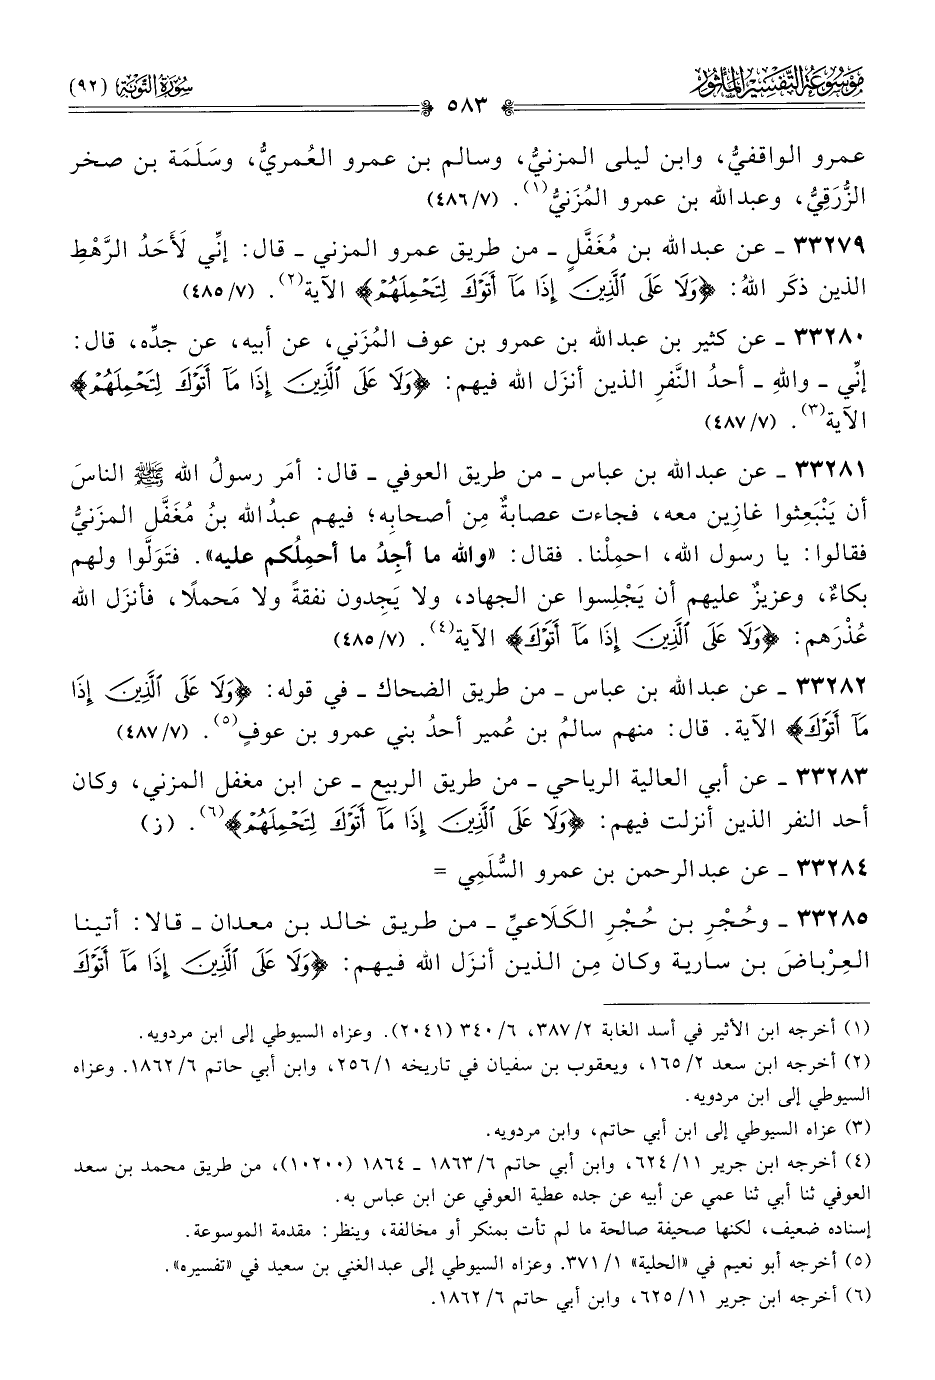 مَوْسُوعَة التَّفْسِير المَأْثُور
سُورَة التَّوْبَة (٩٢)
٥٨٣
عمرو الواقفيُّ، وابن ليلى المزنيُّ، وسالم بن عمرو العُمريُّ، وسَلَمَة بن صخر
الزُّرَقِيُّ، وعبدالله بن عمرو المُزَنيُّ(١). (٤٨٦/٧)
٣٣٢٧٩ ـ عن عبدالله بن مُغَفَّلٍ ـ من طريق عمرو المزني ـ قال: إنِّي لَأَحَدُ الرَّهْطِ
الذين ذكَر اللهُ: ﴿وَلَا عَلَى ٱلَّذِينَ إِذَا مَآ أَتَوْكَ لِتَحْمِلَهُمْ﴾ الآية(٢). (٤٨٥/٧)
٣٣٢٨٠ ـ عن كثير بن عبدالله بن عمرو بن عوف المُزَني، عن أبيه، عن جدِّه، قال:
إنِّي ـ واللهِ ـ أحدُ النَّفرِ الذين أنزَل الله فيهم: ﴿وَلَا عَلَى ٱلَّذِينَ إِذَا مَآ أَتَوْكَ لِتَحْمِلَهُمْ﴾
الآية(٣). (٤٨٧/٧)
٣٣٢٨١ ـ عن عبدالله بن عباس ـ من طريق العوفي ـ قال: أمَر رسولُ الله ﷺ الناسَ
أن يَنْبَعِثوا غازِين معه، فجاءت عصابةٌ مِن أصحابِه؛ فيهم عبدُالله بنُ مُغَفَّل المزَنيُّ
فقالوا: يا رسول الله، احمِلْنا. فقال: «والله ما أجِدُ ما أحمِلُكم عليه». فتَوَلَّوا ولهم
بكاءٌ، وعزيزٌ عليهم أن يَجْلِسوا عن الجهاد، ولا يَجِدون نفقةً ولا مَحملًا، فأنزَل الله
عُذْرَهم: ﴿وَلَا عَلَى ٱلَّذِينَ إِذَا مَآ أَتَوْكَ﴾ الآية(٤). (٤٨٥/٧)
٣٣٢٨٢ ـ عن عبدالله بن عباس ـ من طريق الضحاك ـ في قوله: ﴿وَلَا عَلَى ٱلَّذِينَ إِذَا
مَآ أَتَوْكَ﴾ الآية. قال: منهم سالمُ بن عُمير أحدُ بني عمرو بن عوفٍ(٥). (٤٨٧/٧)
٣٣٢٨٣ ـ عن أبي العالية الرياحي ـ من طريق الربيع ـ عن ابن مغفل المزني، وكان
أحد النفر الذين أنزلت فيهم: ﴿وَلَا عَلَى ٱلَّذِينَ إِذَا مَآ أَتَوْكَ لِتَحْمِلَهُمْ﴾(٦). (ز)
٣٣٢٨٤ ـ عن عبدالرحمن بن عمرو السُّلَمِي =
٣٣٢٨٥ ـ وحُجْرِ بن حُجْرِ الكَلَاعيِّ ـ من طريق خالد بن معدان ـ قالا: أتينا
العِرْباضَ بن سارية وكان مِن الذين أنزَل الله فيهم: ﴿وَلَا عَلَى ٱلَّذِينَ إِذَا مَآ أَتَوْكَ
(١) أخرجه ابن الأثير في أسد الغابة ٣٨٧/٢، ٣٤٠/٦ (٢٠٤١). وعزاه السيوطي إلى ابن مردويه.
(٢) أخرجه ابن سعد ١٦٥/٢، ويعقوب بن سفيان في تاريخه ٢٥٦/١، وابن أبي حاتم ١٨٦٢/٦. وعزاه
السيوطي إلى ابن مردويه.
(٣) عزاه السيوطي إلى ابن أبي حاتم، وابن مردويه.
(٤) أخرجه ابن جرير ٦٢٤/١١، وابن أبي حاتم ١٨٦٣/٦ ـ ١٨٦٤ (١٠٢٠٠)، من طريق محمد بن سعد
العوفي ثنا أبي ثنا عمي عن أبيه عن جده عطية العوفي عن ابن عباس به.
إسناده ضعيف، لكنها صحيفة صالحة ما لم تأت بمنكر أو مخالفة، وينظر: مقدمة الموسوعة.
(٥) أخرجه أبو نعيم في «الحلية» ٣٧١/١. وعزاه السيوطي إلى عبدالغني بن سعيد في «تفسيره».
(٦) أخرجه ابن جرير ٦٢٥/١١، وابن أبي حاتم ١٨٦٢/٦.